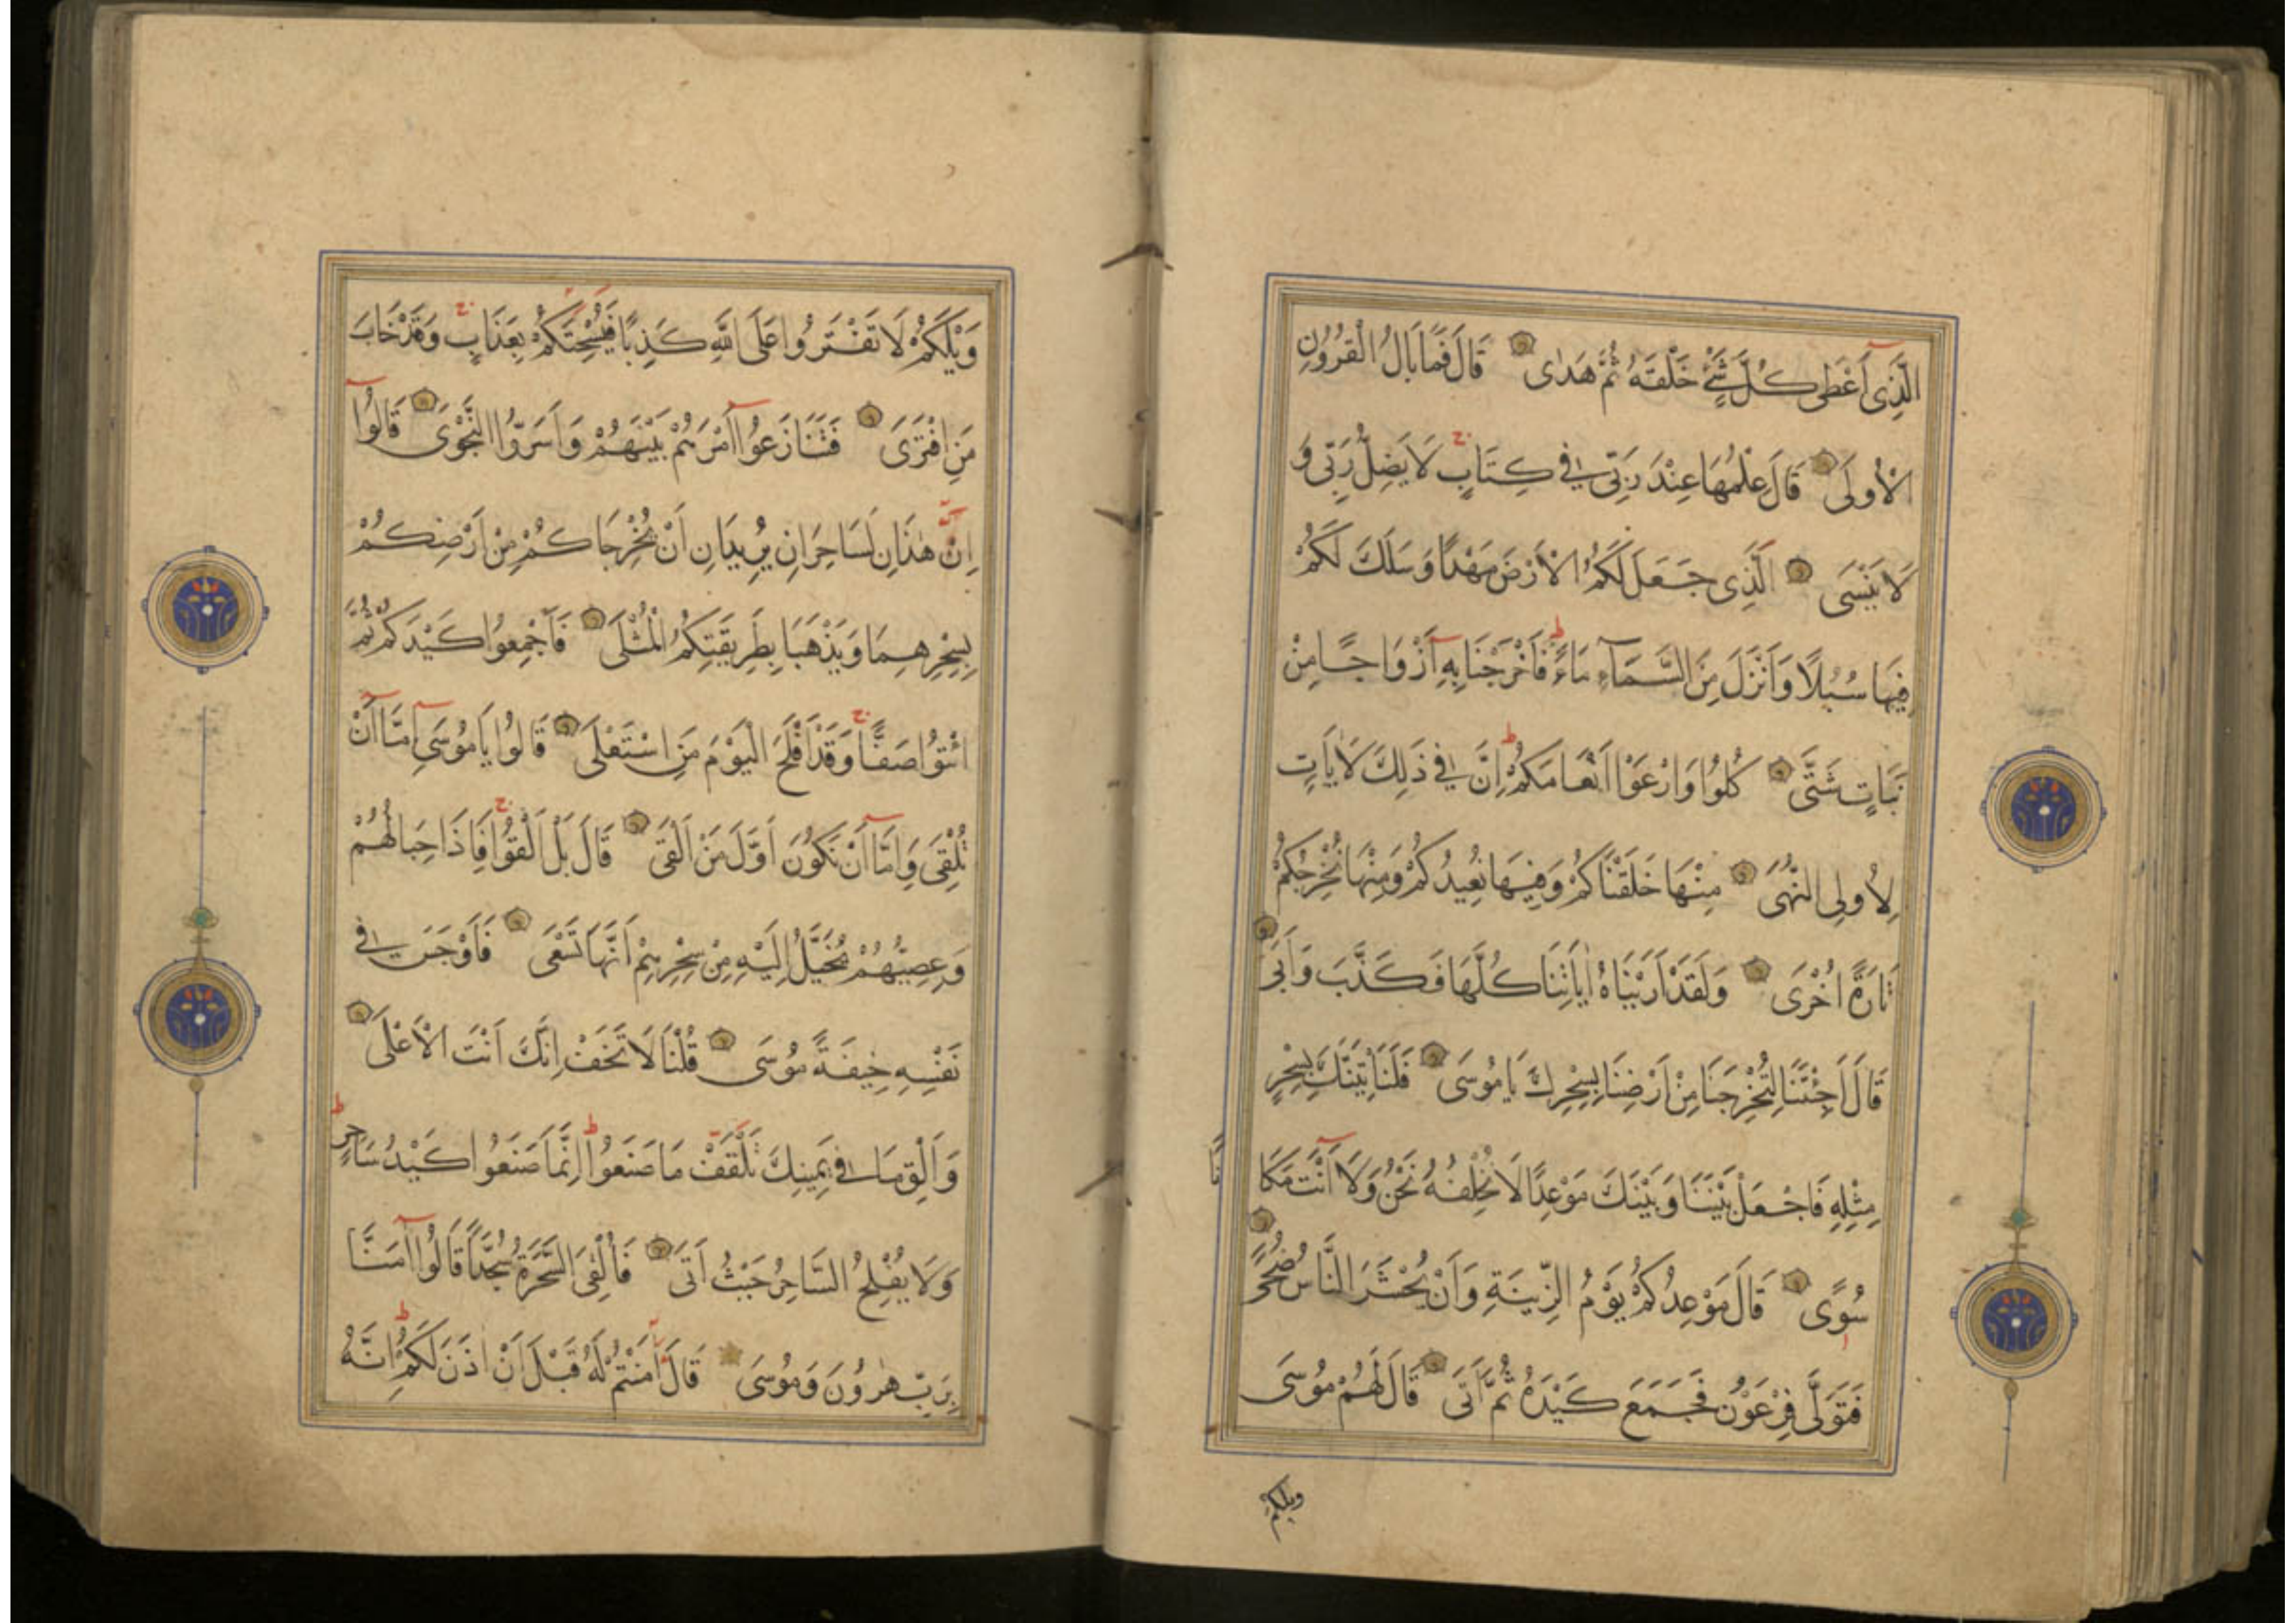 الَّذِي أَعْطَى كُلَّ شَيْءٍ خَلْقَهُ ثُمَّ هَدٰى قَالَ فَمَا بَالُ الْقُرُونِ
الْأُولَى قَالَ عِلْمُهَا عِنْدَ رَبِّي فِي كِتَابٍ ج لَا يَضِلُّ رَبِّي وَ
لَا يَنْسَى الَّذِي جَعَلَ لَكُمُ الْأَرْضَ مَهْدًا وَسَلَكَ لَكُمْ
فِيهَا سُبُلًا وَأَنْزَلَ مِنَ السَّمَآءِ مَاءً ط فَأَخْرَجْنَا بِهِ أَزْوَاجًا مِنْ
نَبَاتٍ شَتَّى كُلُوا وَارْعَوْا أَنْعَامَكُمْ ط إِنَّ فِي ذَلِكَ لَآيَاتٍ
لِأُولِي النُّهَى مِنْهَا خَلَقْنَاكُمْ وَفِيهَا نُعِيدُكُمْ وَمِنْهَا نُخْرِجُكُمْ
تَارَةً أُخْرَى وَلَقَدْ أَرَيْنَاهُ اٰيَاتِنَا كُلَّهَا فَكَذَّبَ وَأَبَى
قَالَ أَجِئْتَنَا لِتُخْرِجَنَا مِنْ أَرْضِنَا بِسِحْرِكَ يَا مُوسَى فَلَنَأْتِيَنَّكَ بِسِحْرٍ
مِثْلِهِ فَاجْعَلْ بَيْنَنَا وَبَيْنَكَ مَوْعِدًا لَا نُخْلِفُهُ نَحْنُ وَلَا أَنْتَ مَكَا
نًا
سُوًى قَالَ مَوْعِدُكُمْ يَوْمُ الزِّينَةِ وَأَنْ يُحْشَرَ النَّاسُ ضُحًى
فَتَوَلَّى فِرْعَوْنُ فَجَمَعَ كَيْدَهُ ثُمَّ أَتَى قَالَ لَهُمْ مُوسَى
ويلكم
وَيْلَكُمْ لَا تَفْتَرُوا عَلَى اللَّهِ كَذِبًا فَيُسْحِتَكُمْ بِعَذَابٍ ج وَقَدْ خَابَ
مَنِ افْتَرَى فَتَنَازَعُوا أَمْرَهُمْ بَيْنَهُمْ وَأَسَرُّوا النَّجْوَى قَالُوا
إِنْ هٰذَانِ لَسَاحِرَانِ يُرِيدَانِ أَنْ يُخْرِجَاكُمْ مِنْ أَرْضِكُمْ
بِسِحْرِهِمَا وَيَذْهَبَا بِطَرِيقَتِكُمُ الْمُثْلَى فَأَجْمِعُوا كَيْدَكُمْ ثُمَّ
ائْتُوا صَفًّا ج وَقَدْ أَفْلَحَ الْيَوْمَ مَنِ اسْتَعْلَى قَالُوا يَا مُوسَى إِمَّا أَنْ
تُلْقِيَ وَإِمَّا أَنْ نَكُونَ أَوَّلَ مَنْ أَلْقَى قَالَ بَلْ أَلْقُوا ج فَإِذَا حِبَالُهُمْ
وَعِصِيُّهُمْ يُخَيَّلُ إِلَيْهِ مِنْ سِحْرِهِمْ أَنَّهَا تَسْعَى فَأَوْجَسَ فِي
نَفْسِهِ خِيفَةً مُوسَى قُلْنَا لَا تَخَفْ إِنَّكَ أَنْتَ الْأَعْلَى
وَأَلْقِ مَا فِي يَمِينِكَ تَلْقَفْ مَا صَنَعُوا ط إِنَّمَا صَنَعُوا كَيْدُ سَاحِرٍ ط
وَلَا يُفْلِحُ السَّاحِرُ حَيْثُ أَتَى فَأُلْقِيَ السَّحَرَةُ سُجَّدًا قَالُوا آمَنَّا
بِرَبِّ هٰرُونَ وَمُوسَى قَالَ أٰمَنْتُمْ لَهُ قَبْلَ أَنْ اٰذَنَ لَكُمْ ط إِنَّهُ